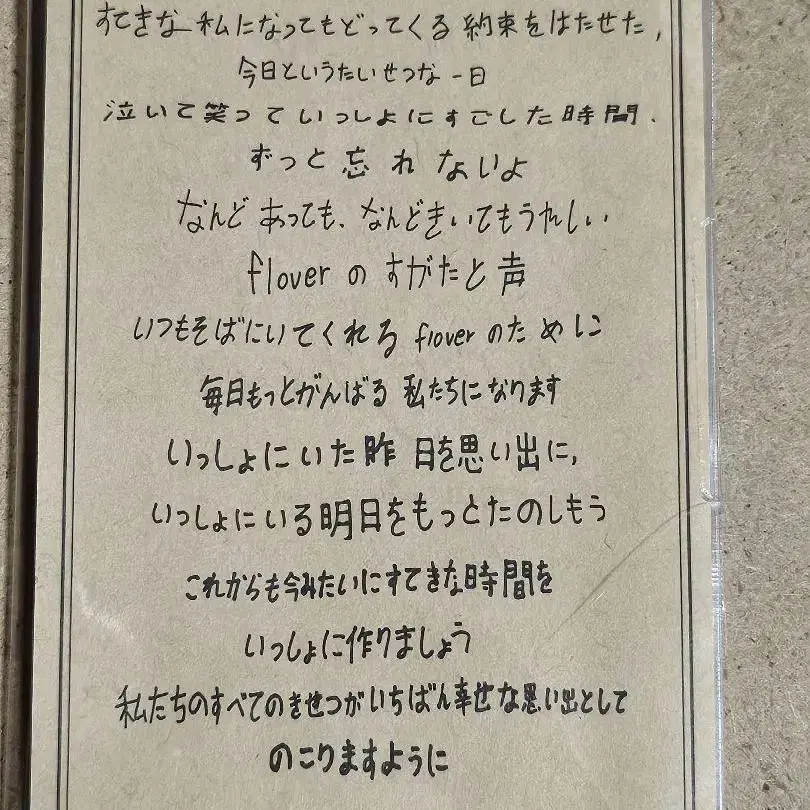 すてきな私になってもどってくる約束をはたせた,
今日というたいせつな一日
泣いて笑っていっしょにすごした時間.
ずっと忘れないよ
なんどあっても、なんどきいてもうれしい
floverのすがたと声
いつもそばにいてくれるfloverのために
毎日もっとがんばる私たちになります
いっしょにいた昨日を思い出に,
いっしょにいる明日をもっとたのしもう
これからも今みたいにすてきな時間を
いっしょに作りましょう
私たちのすべてのきせつがいちばん幸せな思い出として
のこりますように